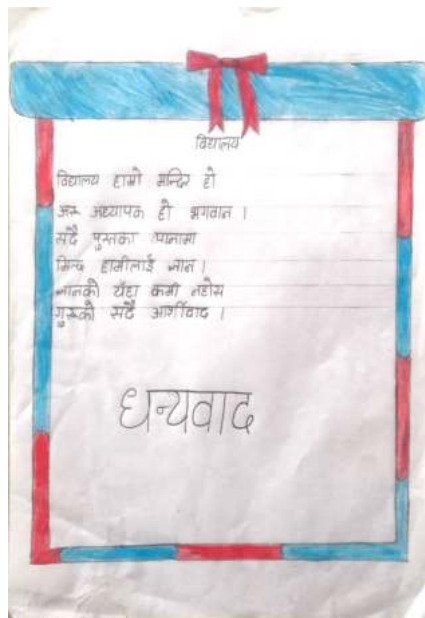 विद्यालय
विद्यालय हाम्रो मन्दिर हो
अरू अध्यापक हो भगवान ।
सदै पुस्तका पानामा
मिल्द हामीलाई ज्ञान ।
ज्ञानको यँहा कमी नहोस
गुरूको सदै आर्शीवाद ।
धन्यवाद